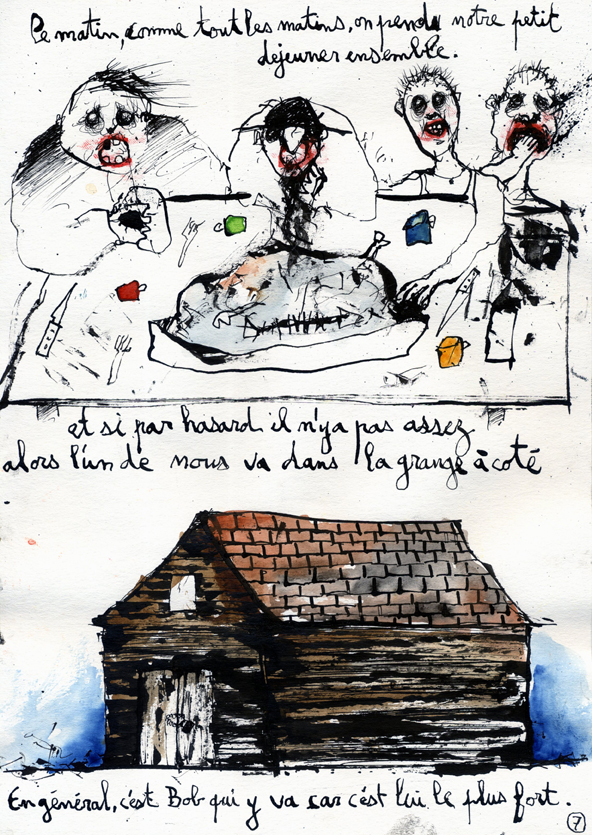 Le matin, comme tout les matins, on prends notre petit
dejeuner ensemble.
et si par hasard il n'ya pas assez
alors l'un de nous va dans la grange à coté
En général, c'est Bob qui y va car c'est lui le plus fort.
7